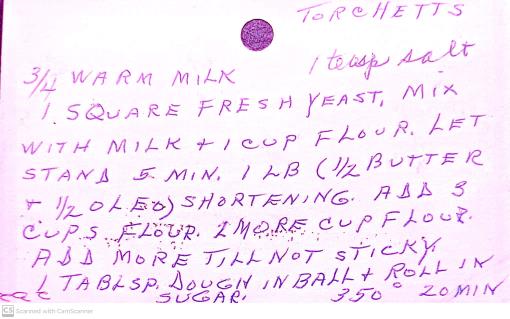 TORCHETTS
1 teasp salt
3/4 WARM MILK
1 SQUARE FRESH YEAST, MIX
WITH MILK + 1 CUP FLOUR. LET
STAND 5 MIN. 1 LB (1/2 BUTTER
+ 1/2 OLEO) SHORTENING. ADD 3
CUPS FLOUR. 1 MORE CUP FLOUR.
ADD MORE TILL NOT STICKY.
1 TABLSP. DOUGH IN BALL + ROLL IN
SUGAR. 350° 20 MIN
CS Scanned with CamScanner